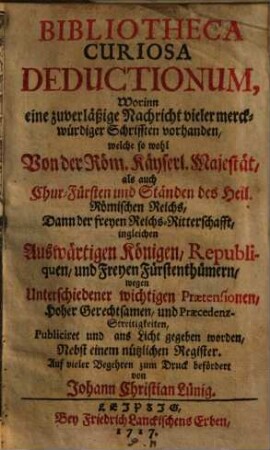 BIBLIOTHECA
CURIOSA
DEDUCTIONUM,
Worinn
eine zuverläßige Nachricht vieler merck-
würdiger Schrifften vorhanden,
welche so wohl
Von der Röm. Käyserl. Majestät,
als auch
Chur-Fürsten und Ständen des Heil.
Römischen Reichs,
Dann der freyen Reichs-Ritterschafft,
ingleichen
Auswärtigen Königen, Republi-
quen, und Freyen Fürstenthümern,
wegen
Unterschiedener wichtigen Prætensionen,
Hoher Gerechtsamen, und Præcedenz-
Streitigkeiten,
Publiciret und ans Licht gegeben worden,
Nebst einem nützlichen Register.
Auf vieler Begehren zum Druck befördert
von
Johann Christian Lünig.
LEIPZIG,
Bey Friedrich Lanckischens Erben,
1717.